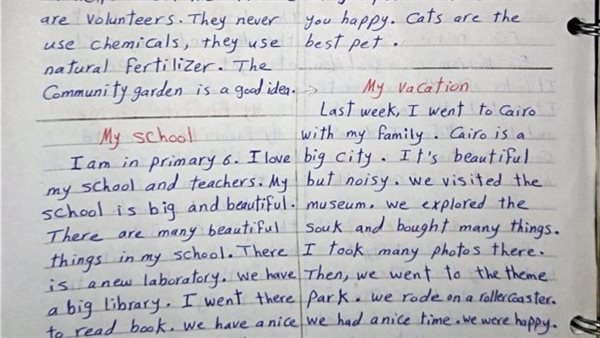 are Volunteers. They never
use chemicals, they use
natural fertilizer. The
Community garden is a good idea.
My school
I am in primary 6. I love
my school and teachers. My
school is big and beautiful.
There are many beautiful
things in my school. There
is a new laboratory. we have
a big library. I went there
to read book. we have a nice
you happy. Cats are the
best pet.
My vacation
Last week, I went to Cairo
with my family. Cairo is a
big city. It's beautiful
but noisy. we visited the
museum. we explored the
souk and bought many things.
I took many photos there.
Then, we went to the theme
Park. we rode on a rollercoaster.
we had a nice time. we were happy.